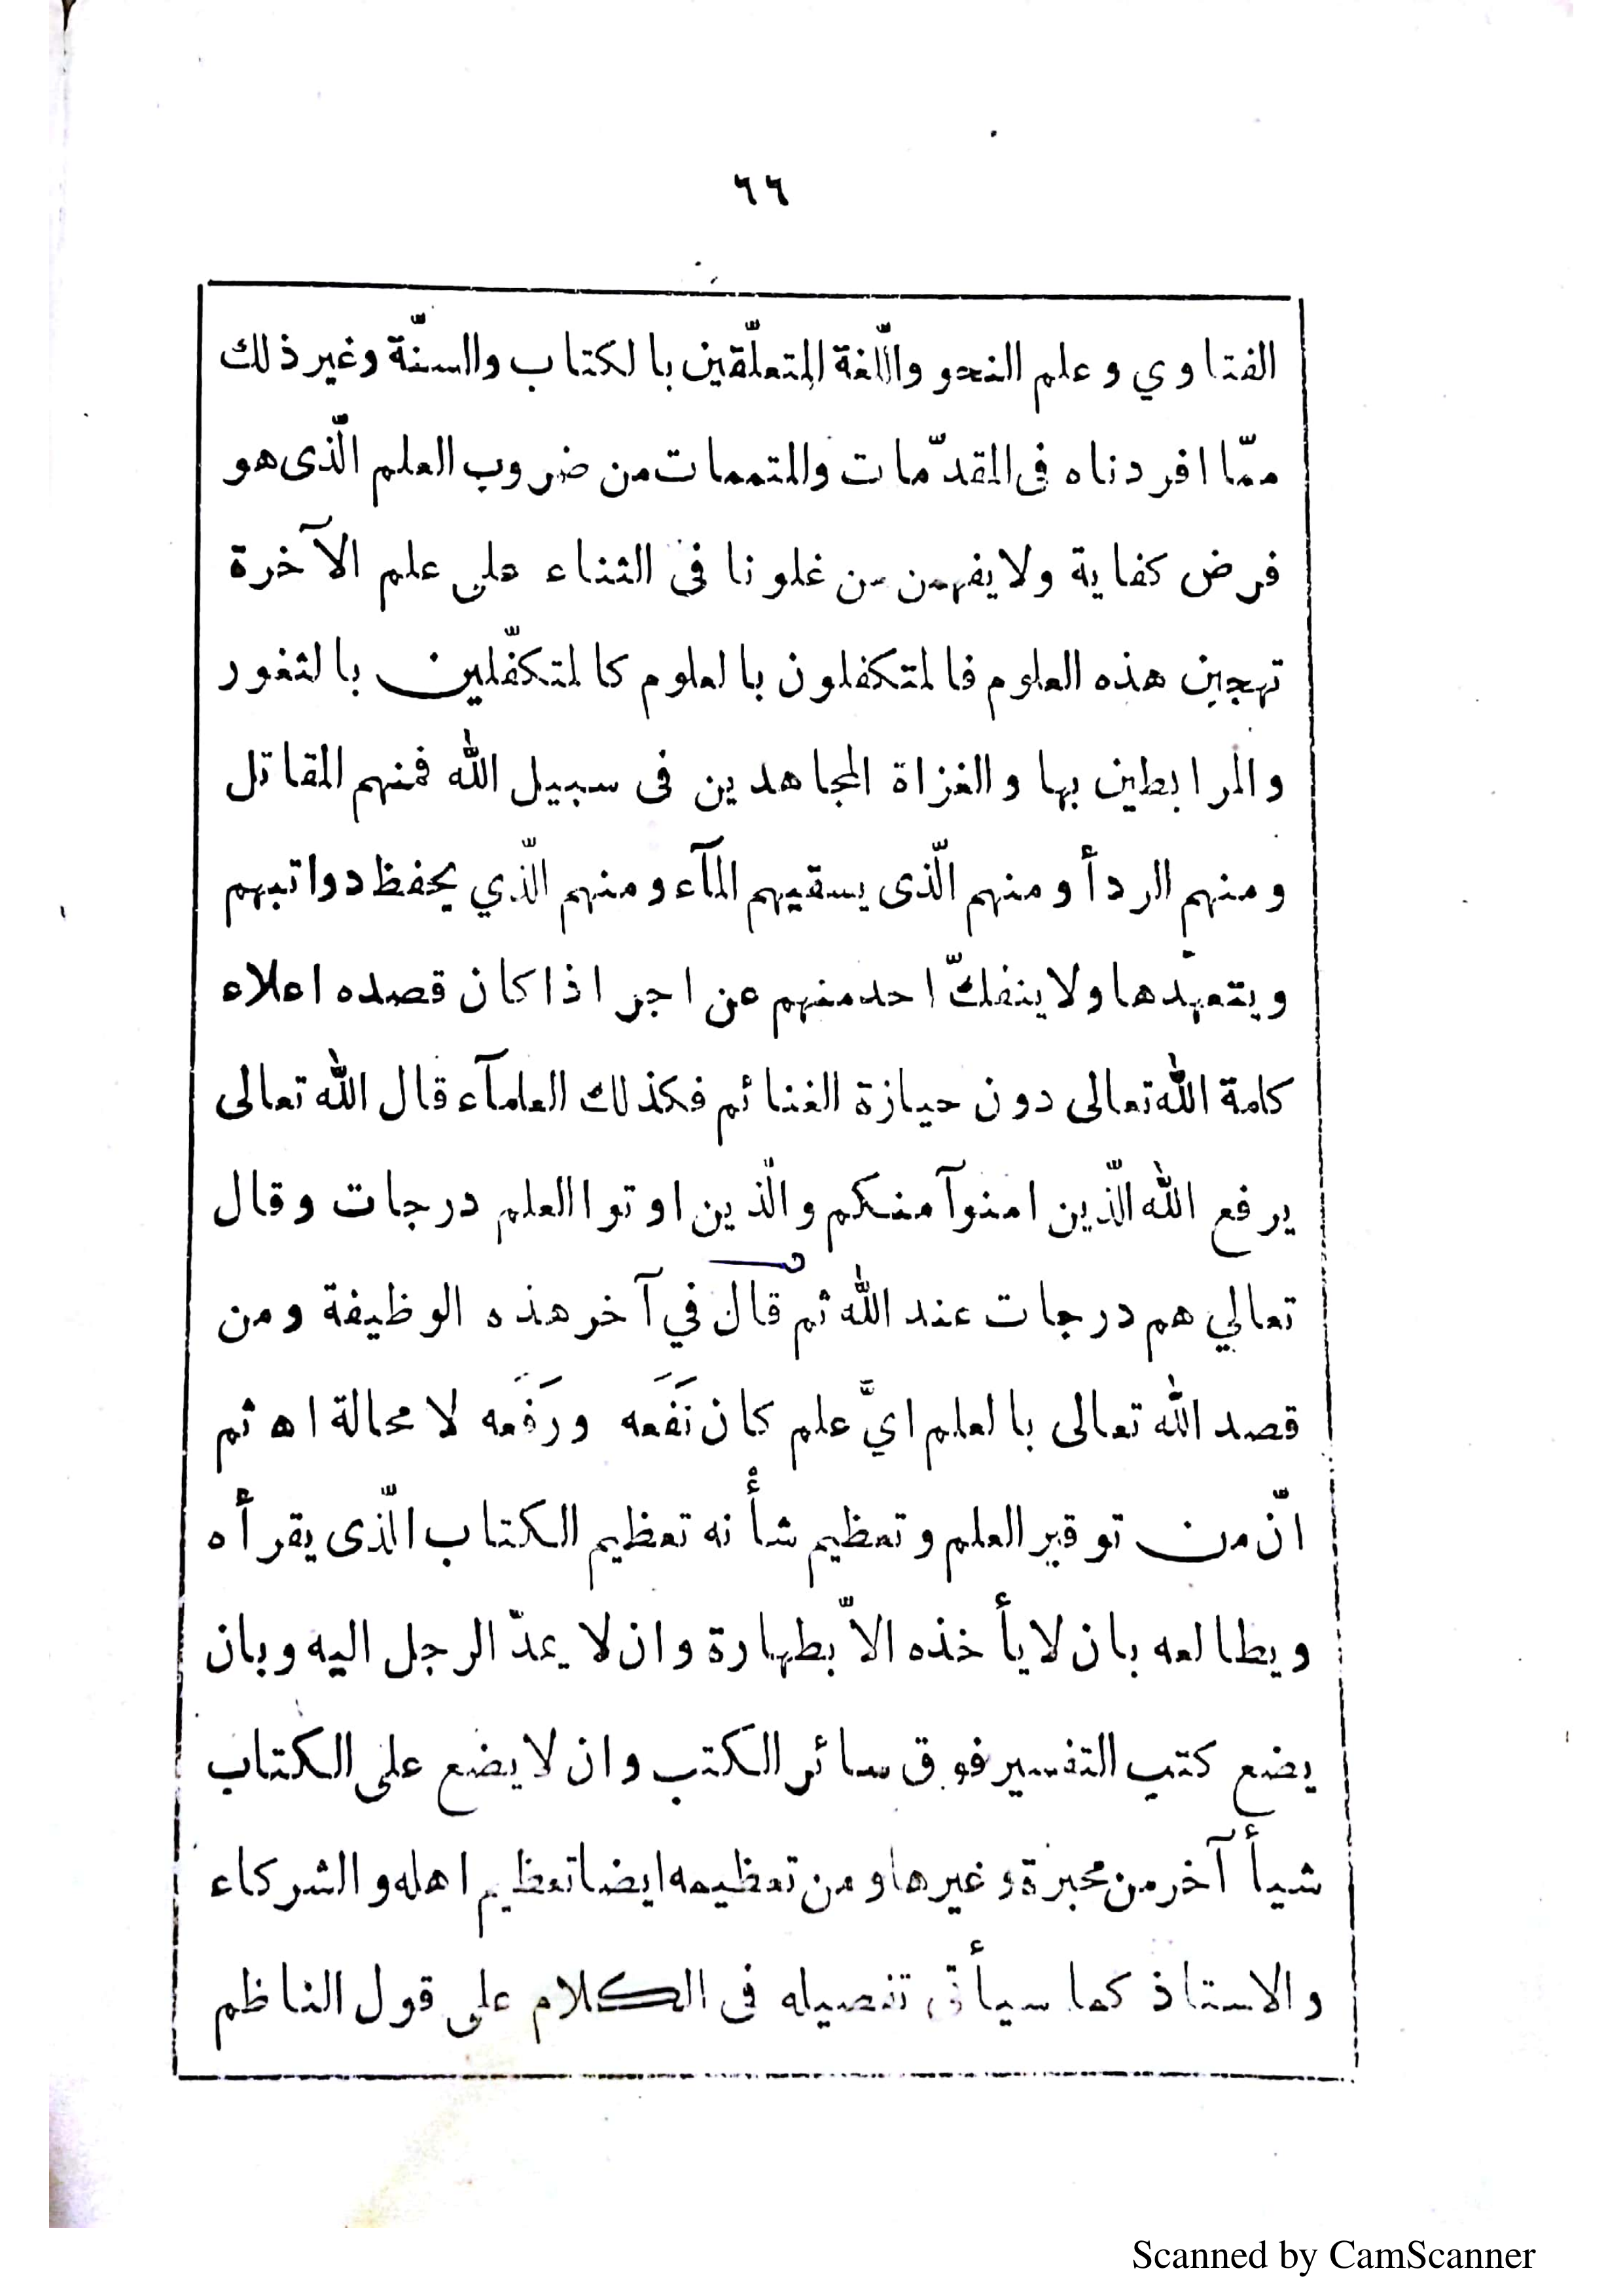 ٦٦
الفتاوي وعلم النحو واللّغة المتعلّقين بالكتاب والسنّة وغير ذلك
ممّا افردناه فى المقدّمات والمتممات من ضروب العلم الّذى هو
فرض كفاية ولا يفهمن من غلونا فى الثناء على علم الآخرة
تهجين هذه العلوم فالمتكفلون بالعلوم كالمتكفّلين بالثغور
والمرابطين بها والغزاة المجاهدين فى سبيل الله فمنهم المقاتل
ومنهم الردأ ومنهم الّذى يسقيهم المآء ومنهم الّذي يحفظ دواتبهم
ويتعهّدها ولا ينفكّ احد منهم عن اجر اذا كان قصده اعلاء
كلمة الله تعالى دون حيازة الغنائم فكذلك العلمآء قال الله تعالى
يرفع الله الّذين امنوآ منكم والّذين اوتوا العلم درجات وقال
تعالي هم درجات عند الله ثم قال في آخر هذه الوظيفة ومن
قصد الله تعالى بالعلم ايَّ علم كان نَفَعَه ورَفَعَه لا محالة اه ثم
انّ من توقير العلم وتعظيم شأنه تعظيم الكتاب الّذى يقرأه
ويطالعه بان لا يأخذه الاّ بطهارة وان لا يمدّ الرجل اليه وبان
يضع كتب التفسير فوق سائر الكتب وان لا يضع على الكتاب
شيأ آخر من محبرة وغيرها ومن تعظيمه ايضا تعظيم اهله والشركاء
والاستاذ كما سيأتى تفصيله فى الكلام على قول الناظم
Scanned by CamScanner